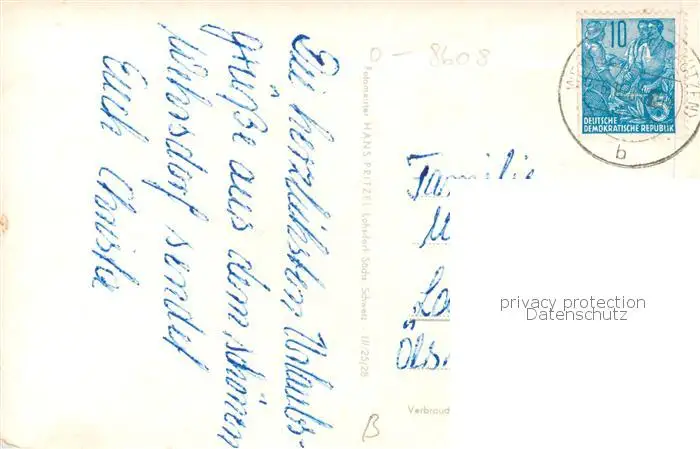 Die herzlichsten Urlaubs-
grüße aus dem schönen
sendet
Euch Christa
O - 8608
Fotomeister HANS PRITZEL Lohsdorf Sächs Schweiz III/25/28
10
DEUTSCHE
DEMOKRATISCHE REPUBLIK
b
Familie
privacy protection
Datenschutz
Verbrauc
B